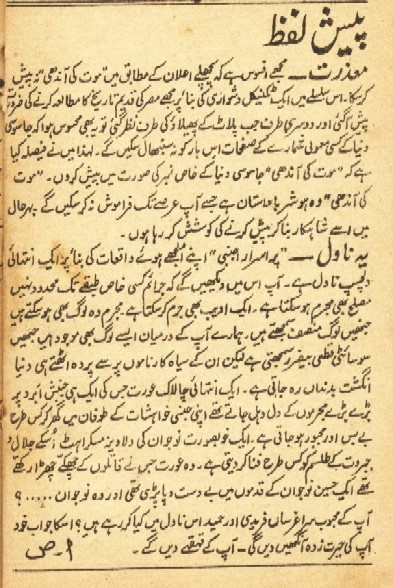 پیش لفظ
معذرت — مجھے افسوس ہے کہ پچھلے اعلان کے مطابق میں "موت کی آندھی" نہ پیش
کرسکا۔ اس سلسلے میں ایک ٹکنیکل دشواری کی بنا پر مجھے مصر کی قدیم تاریخ کا مطالعہ کرنے کی ضرورت
پیش آگئی اور دوسری طرف جب پلاٹ کے پھیلاؤ کی طرف نظر گئی تو یہ بھی محسوس ہوا کہ جاسوسی
دنیا کے کسی معمولی شمارے کے صفحات اس بار کو نہ سنبھال سکیں گے۔ لہذا میں نے فیصلہ کیا
ہے کہ "موت کی آندھی" جاسوسی دنیا کے خاص نمبر کی صورت میں پیش کروں۔ "موت
کی آندھی" وہ ہوشربا داستان ہے جسے آپ عرصے تک فراموش نہ کرسکیں گے بہرحال
میں اسے شاہکار بنا کر پیش کرنے کی کوشش کر رہا ہوں۔
یہ ناول — "پراسرار اجنبی" اپنے الجھے ہوئے واقعات کی بنا پر ایک انتہائی
دلچسپ ناول ہے۔ آپ اس میں دیکھیں گے کہ جرائم کسی خاص طبقے تک محدود نہیں
مصلح بھی مجرم ہوسکتا ہے۔ ایک ادیب بھی جرم کرسکتا ہے۔ مجرم وہ لوگ بھی ہوسکتے ہیں
جنھیں لوگ منصف سمجھتے ہیں۔ ہمارے آپ کے درمیان ایسے لوگ بھی موجود ہیں جنھیں
سوسائٹی قطعی بے ضرر سمجھتی ہے لیکن ان کے سیاہ کارناموں پر سے پردہ اٹھتے ہی دنیا
انگشت بدنداں رہ جاتی ہے۔ ایک انتہائی چالاک عورت جس کی ایک ہی جنبش ابرو پر
بڑے بڑے مجرموں کے دل دہل جاتے تھے اپنی جنسی خواہشات کے طوفان میں گھر کر کس طرح
بے بس اور مجبور ہوجاتی ہے۔ ایک خوبصورت نوجوان کی دلاویز مسکراہٹ اُسکے جلال و
جبروت کے طلسم کو کس طرح فنا کردیتی ہے۔ وہ عورت جس نے قاتلوں کے چھکے چھڑا رکھے
تھے ایک حسین نوجوان کے قدموں میں بے دست و پا پڑی تھی اور وہ نوجوان .....؟
آپ کے محبوب سراغرساں فریدی اور حمید اس ناول میں کیا کر رہے ہیں؟ اسکا جواب خود
آپ کی حیرت زدہ آنکھیں دیں گی۔ آپ کے قہقہے دیں گے۔
ا۔ ص